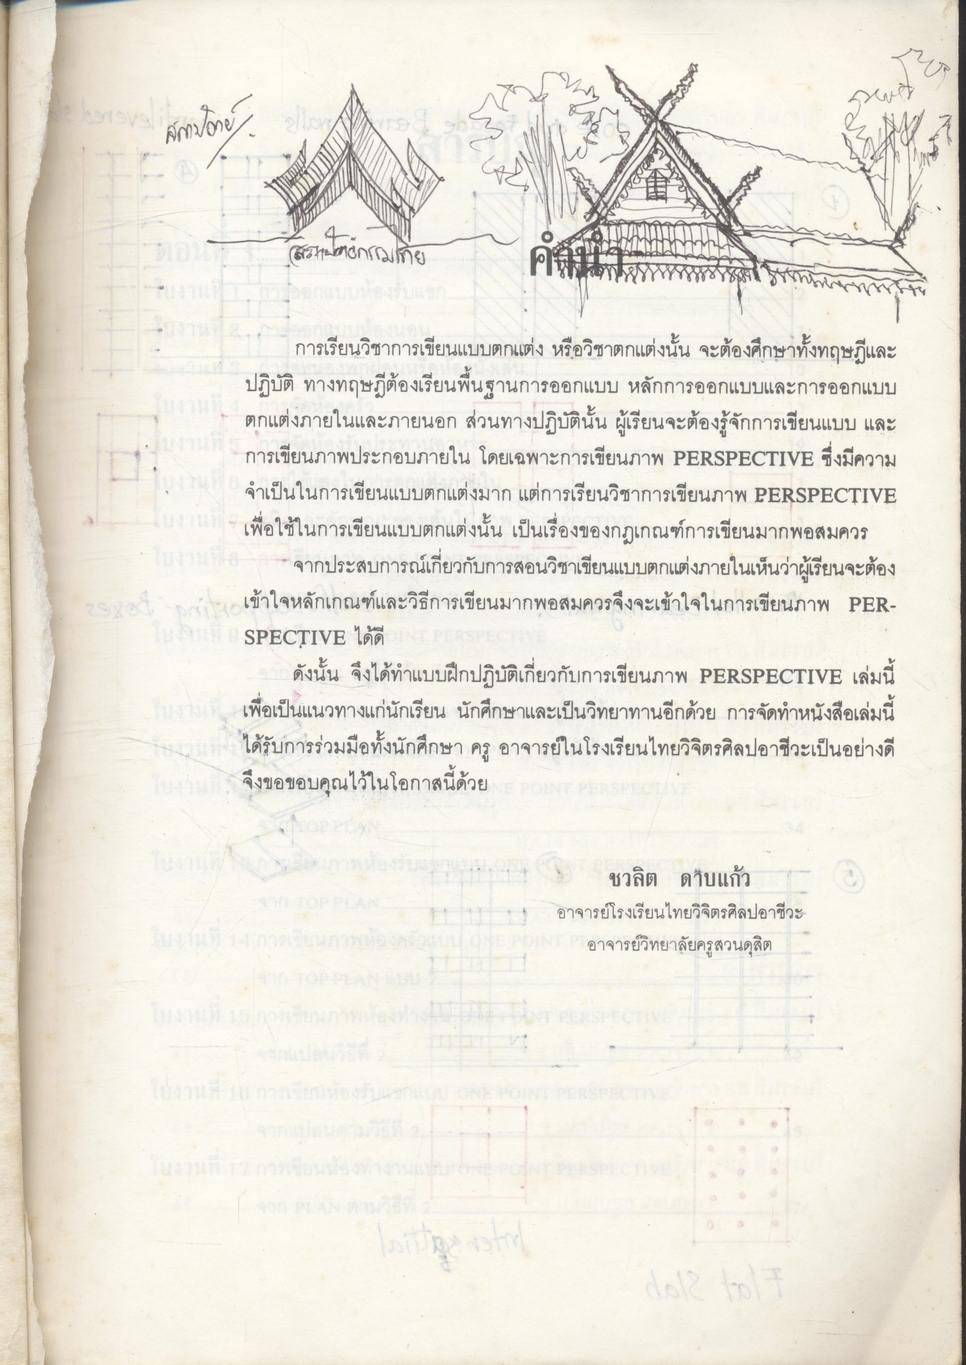 คำนำ
การเรียนวิชาการเขียนแบบตกแต่ง หรือวิชาตกแต่งนั้น จะต้องศึกษาทั้งทฤษฎีและ
ปฏิบัติ ทางทฤษฎีต้องเรียนพื้นฐานการออกแบบ หลักการออกแบบและการออกแบบ
ตกแต่งภายในและภายนอก ส่วนทางปฏิบัตินั้น ผู้เรียนจะต้องรู้จักการเขียนแบบ และ
การเขียนภาพประกอบภายใน โดยเฉพาะการเขียนภาพ PERSPECTIVE ซึ่งมีความ
จำเป็นในการเขียนแบบตกแต่งมาก แต่การเรียนวิชาการเขียนภาพ PERSPECTIVE
เพื่อใช้ในการเขียนแบบตกแต่งนั้น เป็นเรื่องของกฎเกณฑ์การเขียนมากพอสมควร
จากประสบการณ์เกี่ยวกับการสอนวิชาเขียนแบบตกแต่งภายในเห็นว่าผู้เรียนจะต้อง
เข้าใจหลักเกณฑ์และวิธีการเขียนมากพอสมควรจึงจะเข้าใจในการเขียนภาพ PER-
SPECTIVE ได้ดี
ดังนั้น จึงได้ทำแบบฝึกปฏิบัติเกี่ยวกับการเขียนภาพ PERSPECTIVE เล่มนี้
เพื่อเป็นแนวทางแก่นักเรียน นักศึกษาและเป็นวิทยาทานอีกด้วย การจัดทำหนังสือเล่มนี้
ได้รับการร่วมมือทั้งนักศึกษา ครู อาจารย์ในโรงเรียนไทยวิจิตรศิลปอาชีวะเป็นอย่างดี
จึงขอขอบคุณไว้ในโอกาสนี้ด้วย
ชวลิต ดาบแก้ว
อาจารย์โรงเรียนไทยวิจิตรศิลปอาชีวะ
อาจารย์วิทยาลัยครูสวนดุสิต